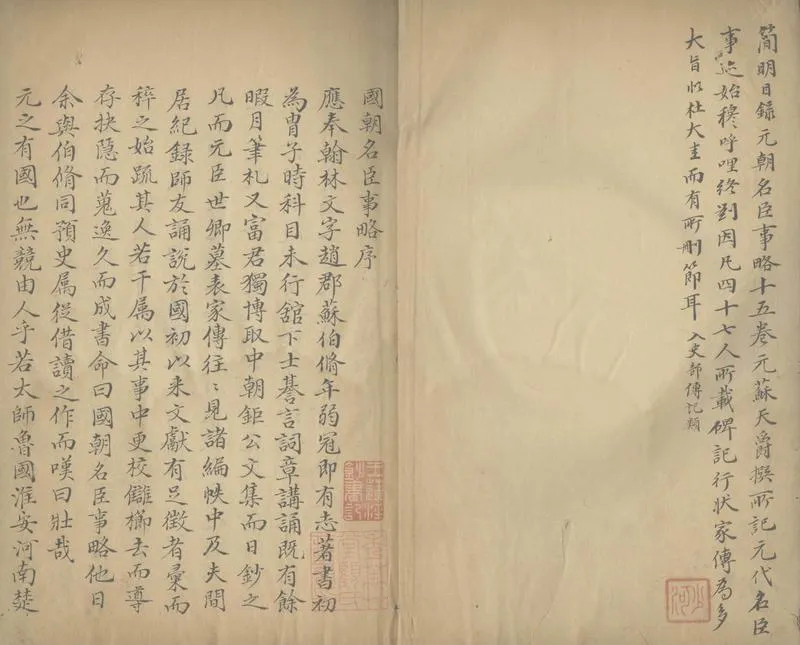 簡明目録元朝名臣事略十五卷元蘇天爵撰所記元代名臣
事迹始穆呼哩終劉因凡四十七人所載碑記行狀家傳為多
大旨似杜大圭而有所刪節耳 入史部傳記類
國朝名臣事略序
應奉翰林文字趙郡蘇伯脩年弱冠即有志著書初
為胄子時科目未行舘下士諅言詞章講誦既有餘
暇月筆札又富君獨博取中朝鉅公文集而日鈔之
凡而元臣世卿墓表家傳往〻見諸編帙中及夫間
居紀録師友誦說於國初以来文獻有足徵者彙而
稡之始䟽其人若干属以其事中更校讎櫛去而導
存抉隱而蒐逸久而成書命曰國朝名臣事略他日
余與伯脩同預史属從借讀之作而嘆曰壯哉
元之有國也無競由人乎若太師魯國淮安河南楚